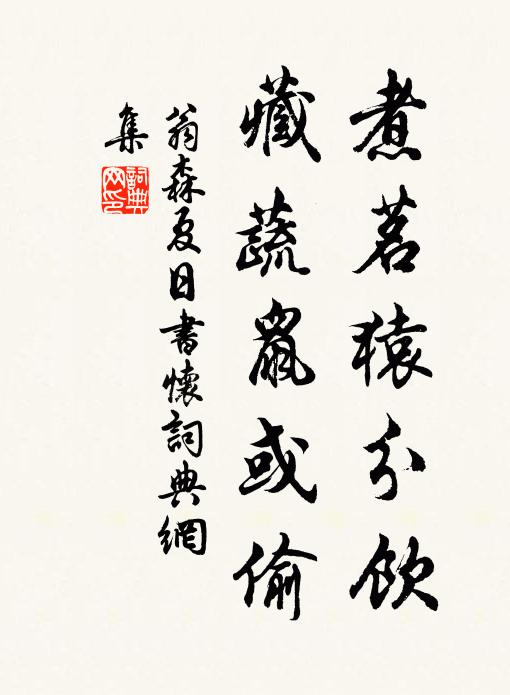 煮茗猿分飲
藏蔬鼠或偷
翁森夏日書懷詞典網
集
詞典
网印